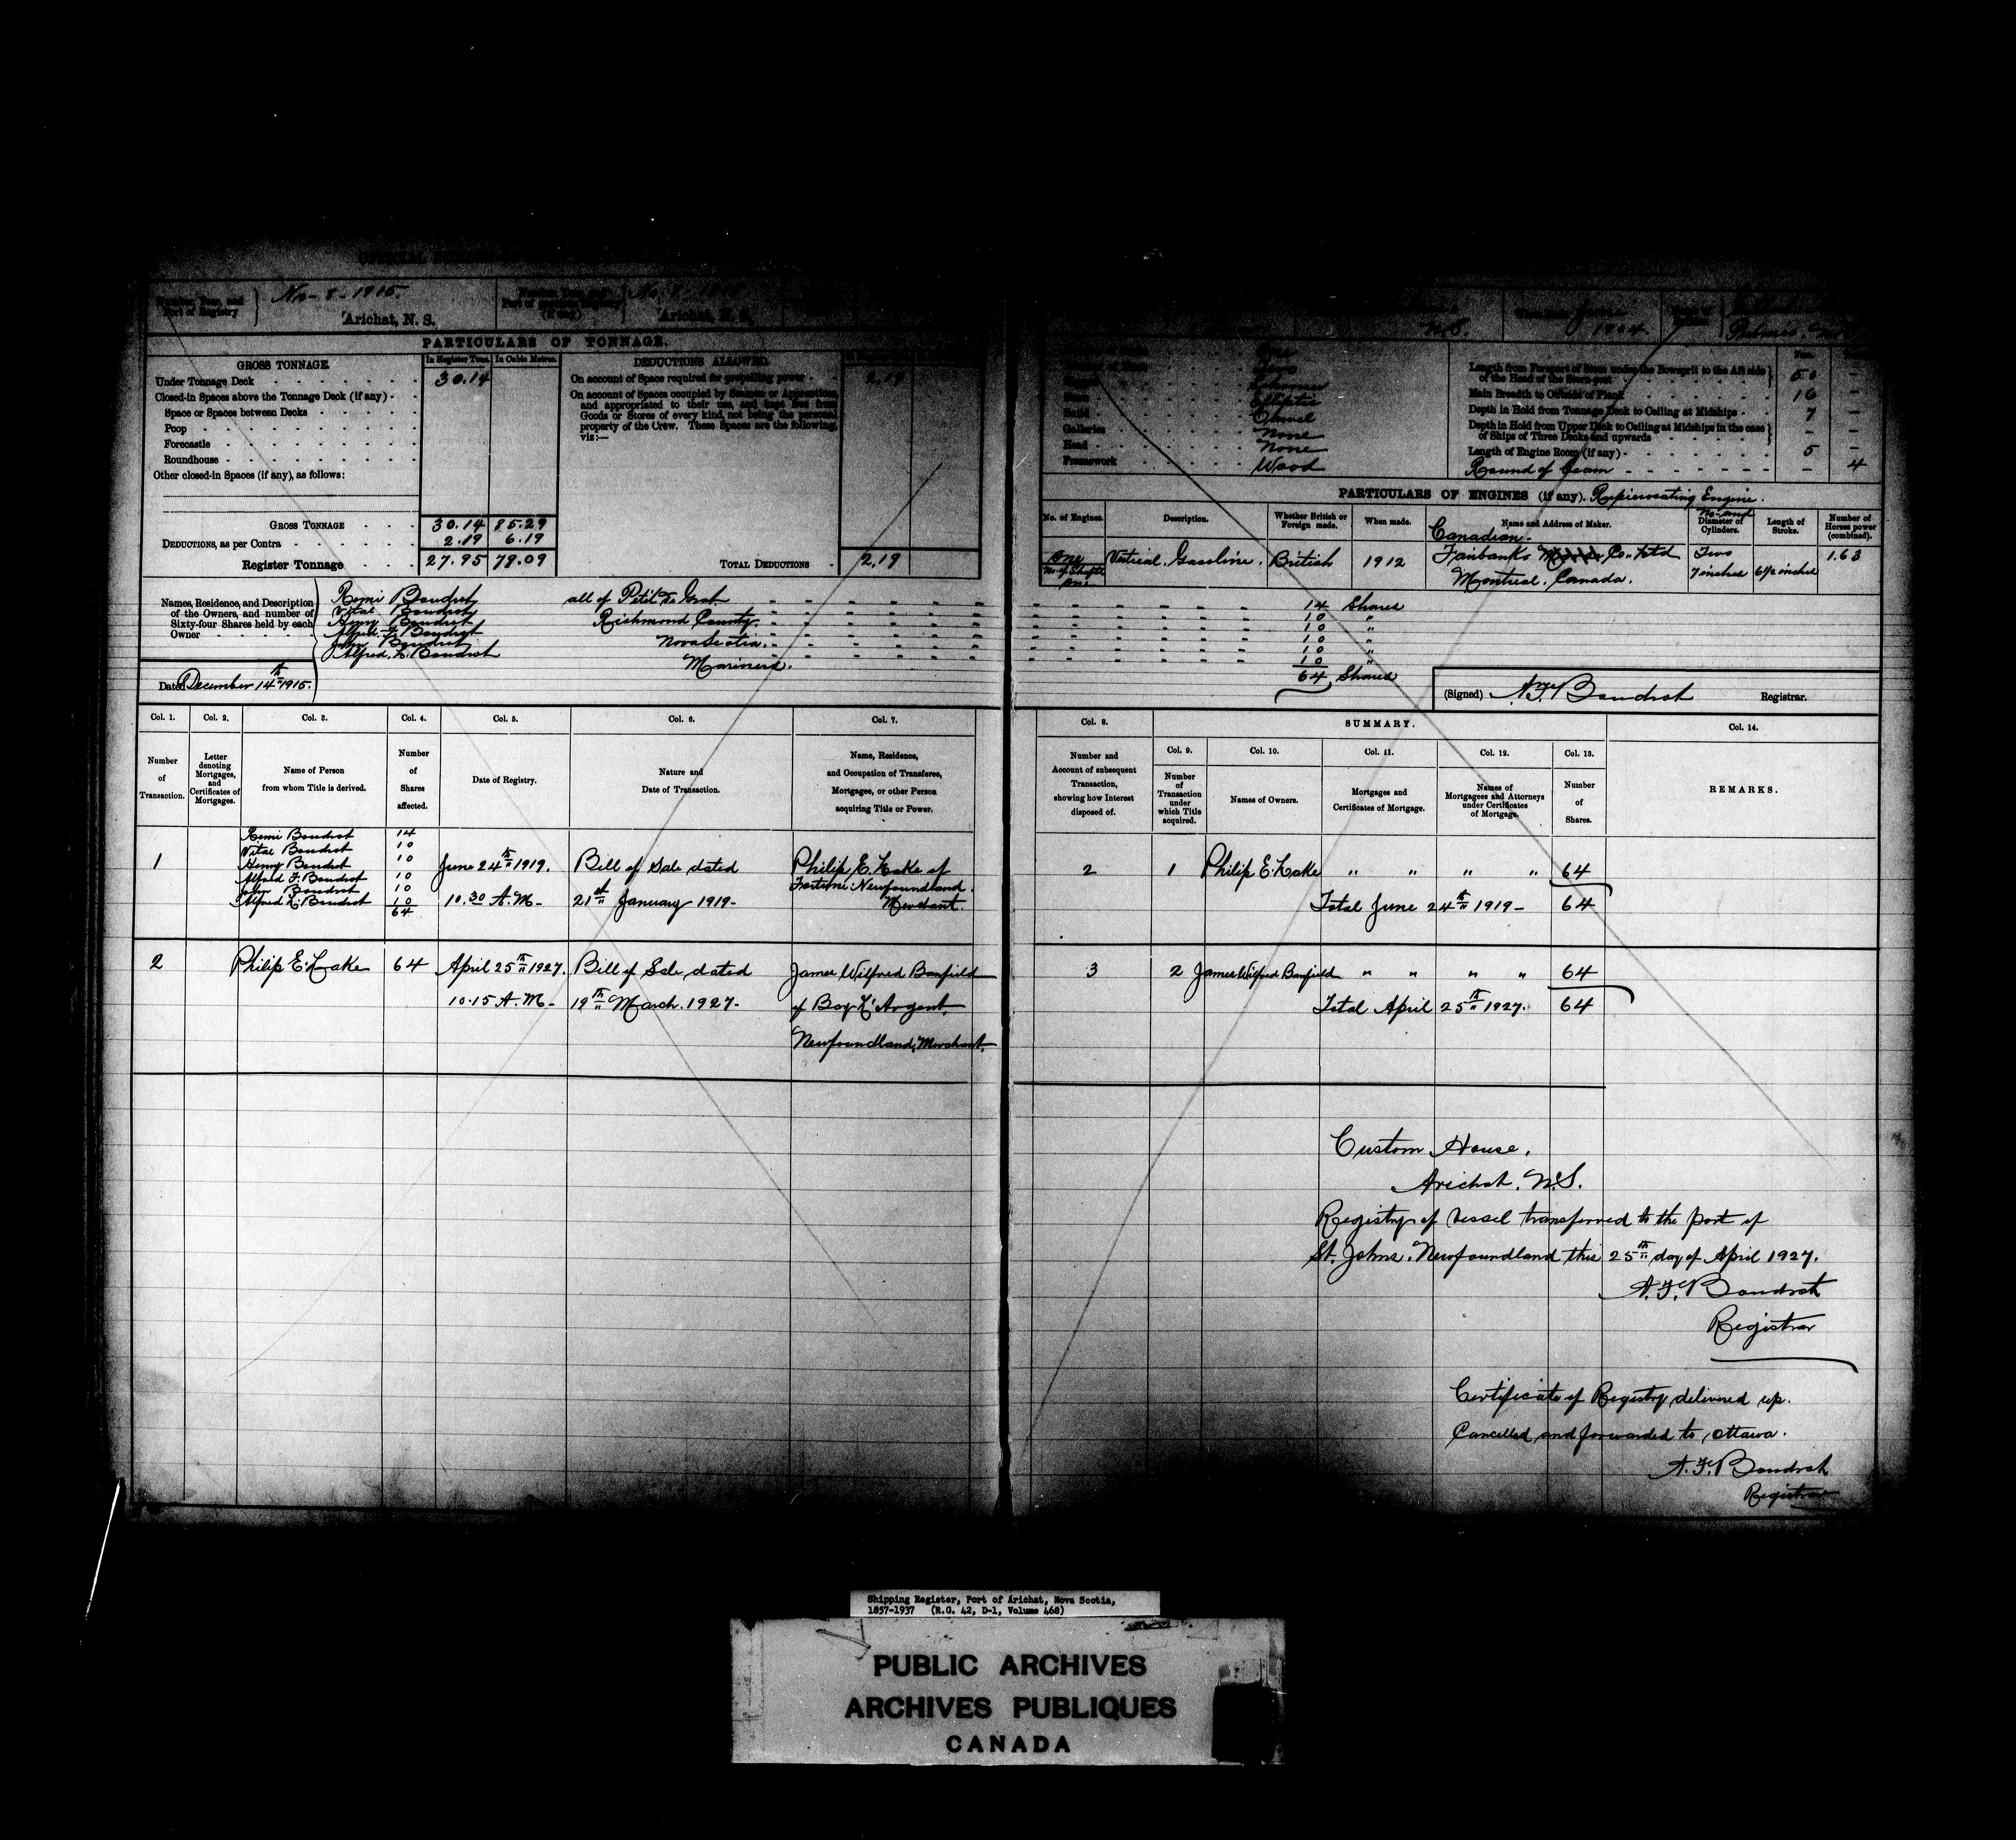 No 8 - 1915.
Arichat, N. S.
Port of Registry
Arichat, N. S.
N.S.
1904.
PARTICULARS OF TONNAGE.
GROSS TONNAGE.
In Register Tons.
In Cubic Metres.
Under Tonnage Deck
30.14
Closed-in Spaces above the Tonnage Deck (if any)
Space or Spaces between Decks
Poop
Forecastle
Roundhouse
Other closed-in Spaces (if any), as follows:
GROSS TONNAGE 30.14 85.29
DEDUCTIONS, as per Contra 2.19 6.19
Register Tonnage 27.95 79.09
DEDUCTIONS ALLOWED.
On account of Space required for propelling power 2.19
On account of Spaces occupied by Seamen or Apprentices,
and appropriated to their use, and kept free from
Goods or Stores of every kind, not being the personal
property of the Crew. These Spaces are the following,
viz:—
TOTAL DEDUCTIONS 2.19
One
Two
Schooner
Elliptic
Build Carvel
Galleries None
Head None
Framework Wood
Length from Forepart of Stem under the Bowsprit to the Aft side
of the Head of the Stern-post 50 —
Main Breadth to Outside of Plank 16 —
Depth in Hold from Tonnage Deck to Ceiling at Midships 7 —
Depth in Hold from Upper Deck to Ceiling at Midships in the case
of Ships of Three Decks and upwards — —
Length of Engine Room (if any) 5 —
Round of beam — 4
PARTICULARS OF ENGINES (if any). Reprocating Engine.
No. of Engines.
Description.
Whether British or Foreign made.
When made.
Name and Address of Maker.
No and Diameter of Cylinders.
Length of Stroke.
Number of Horses power (combined).
One
No. of Shafts
one.
Vertical Gasoline.
British
1912
Canadian
Fairbanks Co. Ltd
Montreal, Canada.
Two
7 inches
6½ inches
1.63
Names, Residence, and Description
of the Owners, and number of
Sixty-four Shares held by each
Owner
Remi Boudrot all of Petit de Grat 14 Shares
Vital Boudrot Richmond County 10 "
Henry Boudrot 10 "
Alfred F. Boudrot Nova Scotia 10 "
John Boudrot 10 "
Alfred L. Boudrot Mariners. 10 "
64 Shares
Dated December 14th 1915.
(Signed) A. F. Boudrot Registrar.
Col. 1. Col. 2. Col. 3. Col. 4. Col. 5. Col. 6. Col. 7. Col. 8. SUMMARY. Col. 14.
Col. 9. Col. 10. Col. 11. Col. 12. Col. 13.
Number of Transaction.
Letter denoting Mortgages, and Certificates of Mortgages.
Name of Person from whom Title is derived.
Number of Shares affected.
Date of Registry.
Nature and Date of Transaction.
Name, Residence, and Occupation of Transferee, Mortgagee, or other Person acquiring Title or Power.
Number and Account of subsequent Transaction, showing how Interest disposed of.
Number of Transaction under which Title acquired.
Names of Owners.
Mortgages and Certificates of Mortgage.
Names of Mortgagees and Attorneys under Certificates of Mortgage.
Number of Shares.
REMARKS.
1
Remi Boudrot 14
Vital Boudrot 10
Henry Boudrot 10
Alfred F. Boudrot 10
John Boudrot 10
Alfred L. Boudrot 10
64
June 24th 1919.
10.30 A.M-
Bill of Sale dated
21st January 1919-
Philip E. Lake of
Fortune Newfoundland.
Merchant.
2 1 Philip E. Lake " " " " 64
Total June 24th 1919- 64
2 Philip E. Lake 64
April 25th 1927.
10.15 A.M-
Bill of Sale, dated
19th March. 1927-
James Wilfred Banfield
of Bay L'Argent.
Newfoundland, Merchant.
3 2 James Wilfred Banfield " " " " 64
Total April 25th 1927. 64
Custom House,
Arichat. N.S.
Registry of Vessel transferred to the port of
St. Johns. Newfoundland this 25th day of April 1927.
A. F. Boudrot
Registrar
Certificate of Registry delivered up.
Cancelled and forwarded to Ottawa.
A. F. Boudrot
Registrar
Shipping Register, Port of Arichat, Nova Scotia,
1857-1937 (R.G. 42, D-1, Volume 468)
PUBLIC ARCHIVES
ARCHIVES PUBLIQUES
CANADA